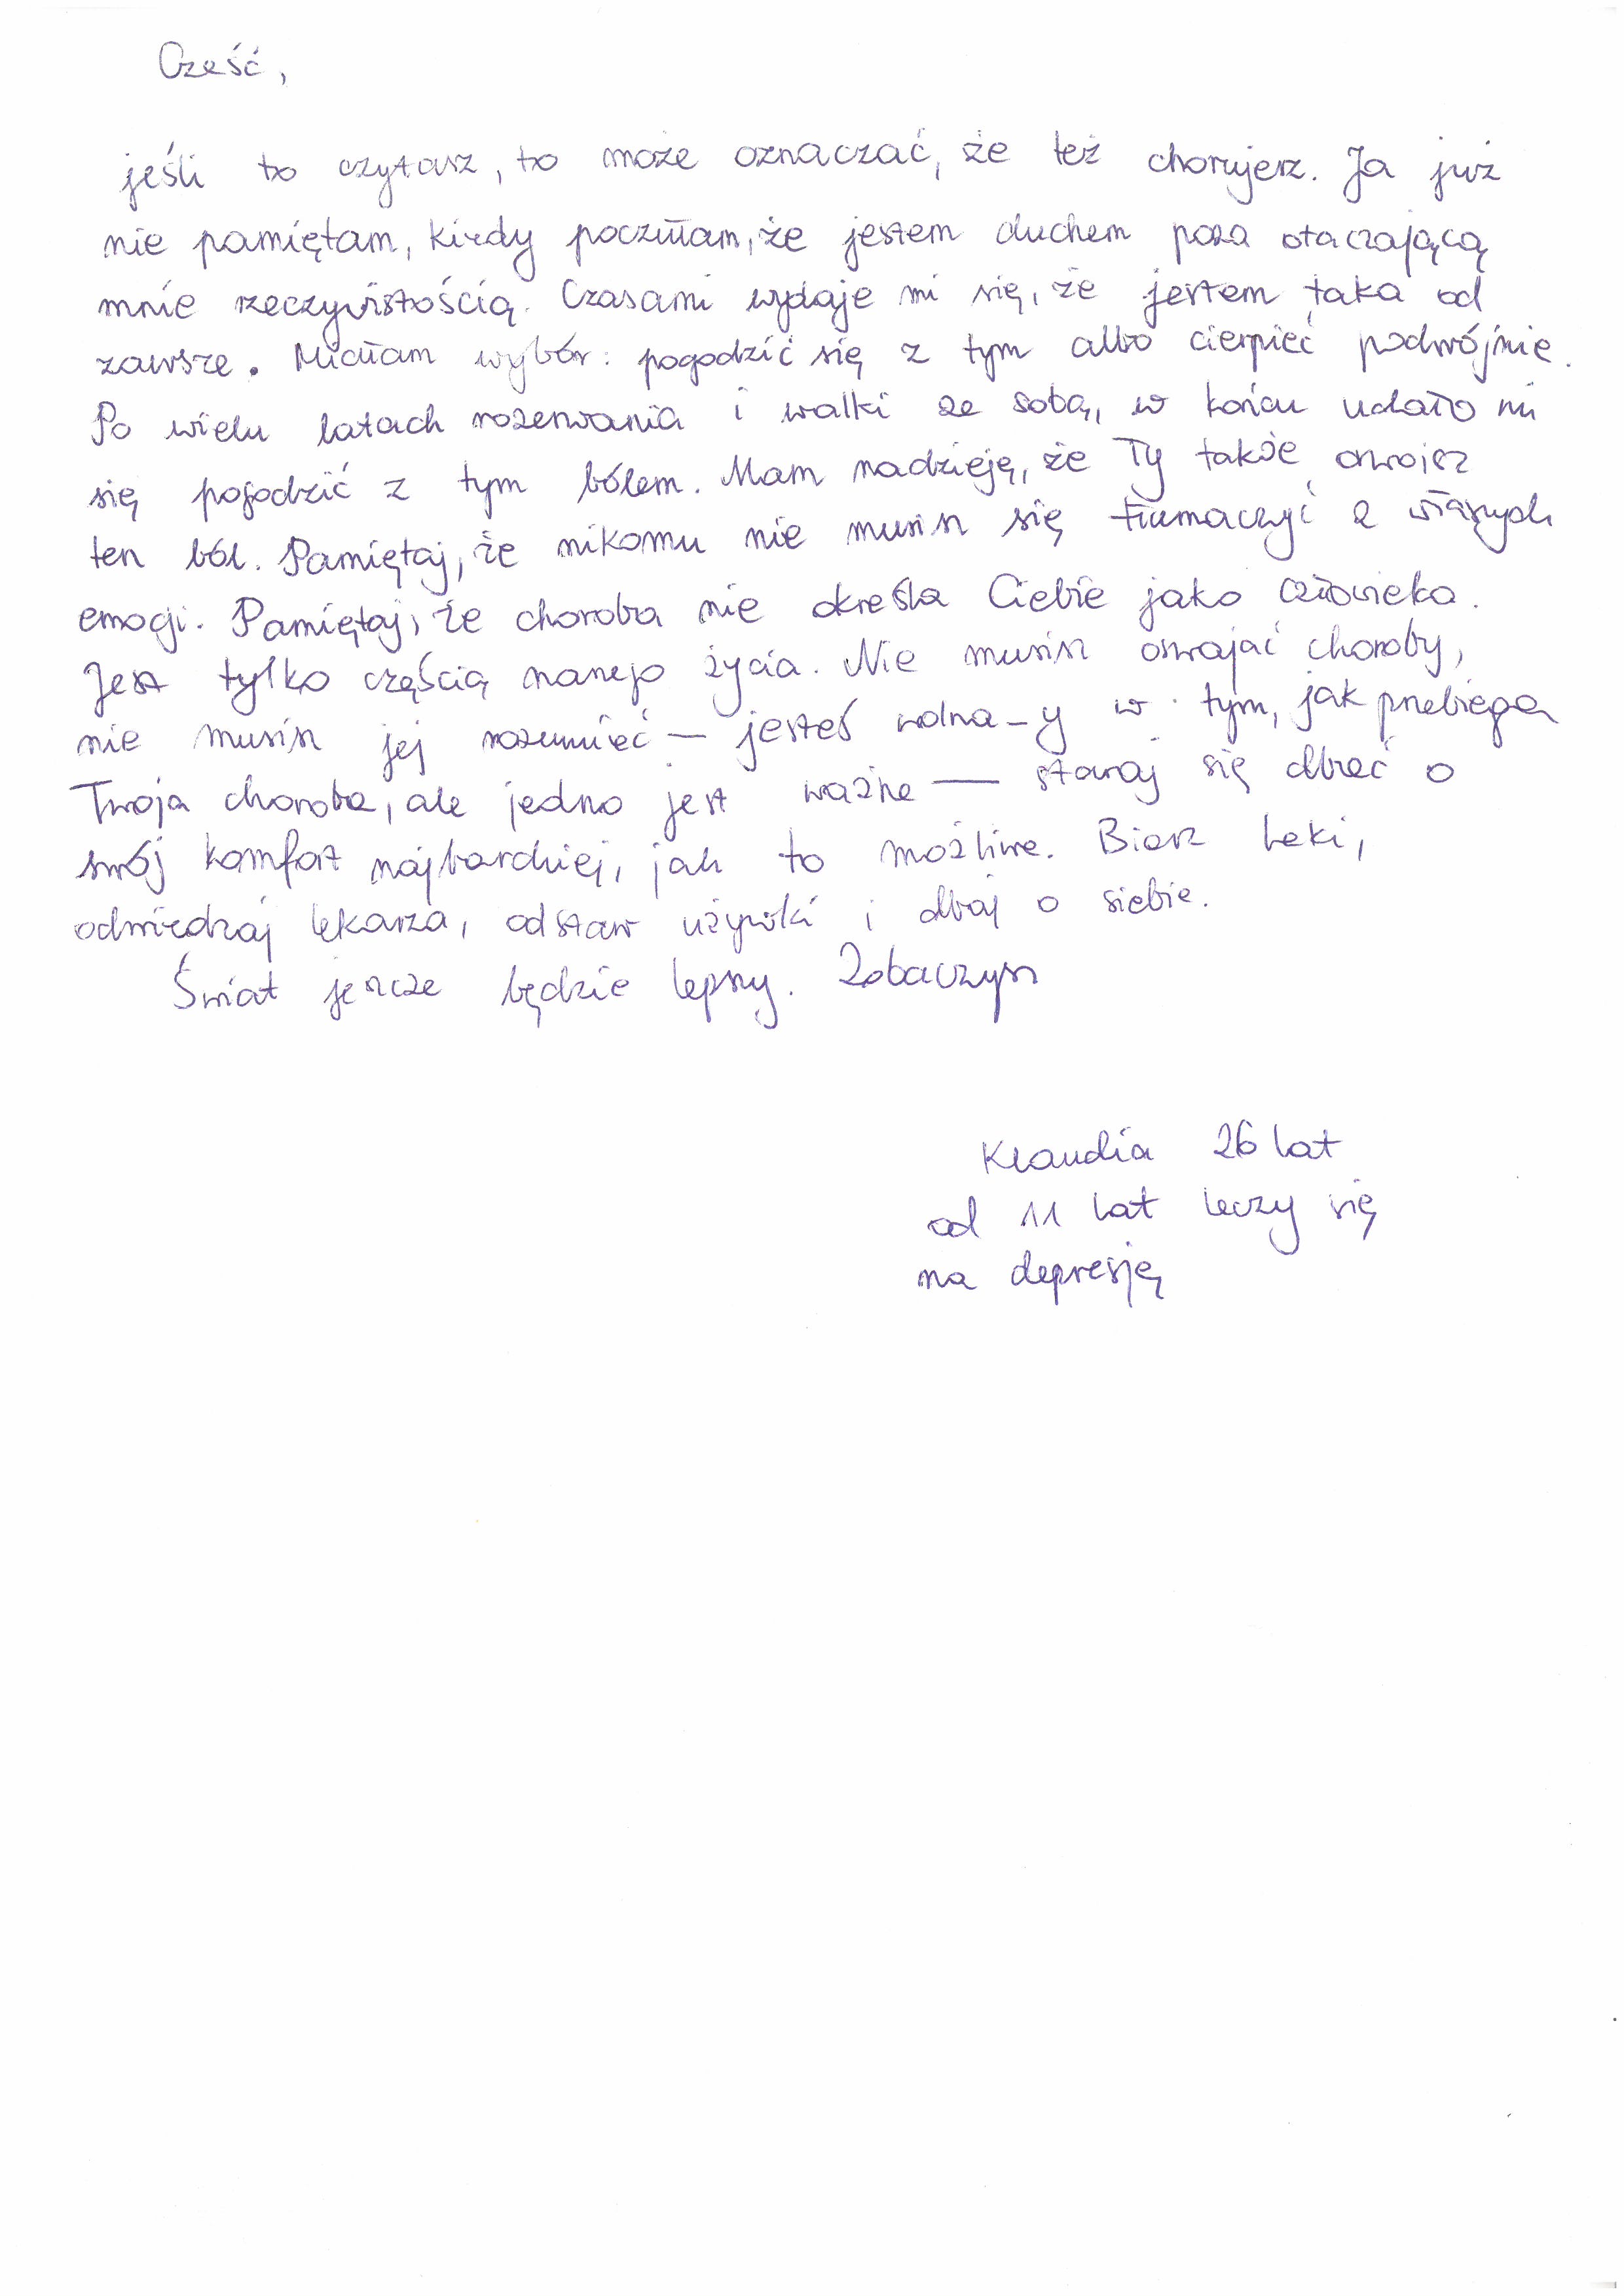 Cześć,
jeśli to czytasz, to może oznaczać, że też chorujesz. Ja już
nie pamiętam, kiedy poczułam, że jestem duchem poza otaczającą
mnie rzeczywistością. Czasami wydaje mi się, że jestem taka od
zawsze. Miałam wybór: pogodzić się z tym albo cierpieć podwójnie.
Po wielu latach rozerwania i walki ze sobą, w końcu udało mi
się pogodzić z tym bólem. Mam nadzieję, że Ty także oswoisz
ten ból. Pamiętaj, że nikomu nie musisz się tłumaczyć z własnych
emocji. Pamiętaj, że choroba nie określa Ciebie jako człowieka.
Jest tylko częścią naszego życia. Nie musisz oswajać choroby,
nie musisz jej rozumieć — jesteś wolna-y w tym, jak przebiega
Twoja choroba, ale jedno jest ważne — staraj się dbać o
swój komfort najbardziej, jak to możliwe. Bierz leki,
odwiedzaj lekarza, odstaw używki i dbaj o siebie.
Świat jeszcze będzie lepszy. Zobaczysz
Klaudia 26 lat
od 11 lat leczy się
na depresję